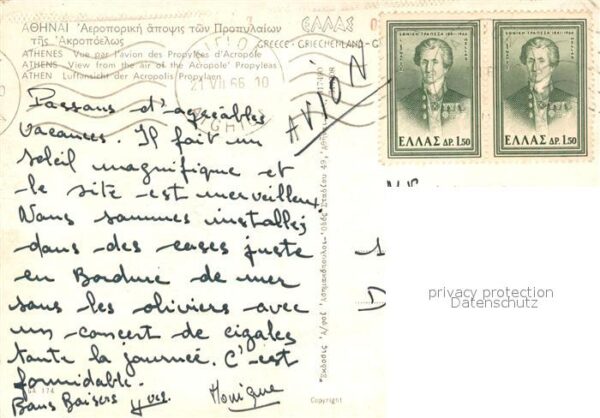 ΑΘΗΝΑΙ Ἀεροπορική ἄποψις τῶν Προπυλαίων
τῆς Ἀκροπόλεως
ATHENES Vue par l'avion des Propylées d'Acropole
ATHENS View from the air of the Acropole' Propyleas
ATHEN Luftansicht der Acropolis Propyläen
ΕΛΛΑΣ
GREECE-GRIECHENLAND-G
21 VII 66. 10
AVION
ΕΛΛΑΣ ΔΡ. 1.50
ΕΛΛΑΣ ΔΡ. 1.50
Passons d'agréables
vacances. Il fait un
soleil magnifique et
le site est merveilleux
Nous sommes installés
dans des cases juste
en Bordure de mer
sous les oliviers avec
un concert de cigales
toute la journée. C'est
formidable.
Bons Baisers Yves. Monique
174
Copyright
privacy protection
Datenschutz